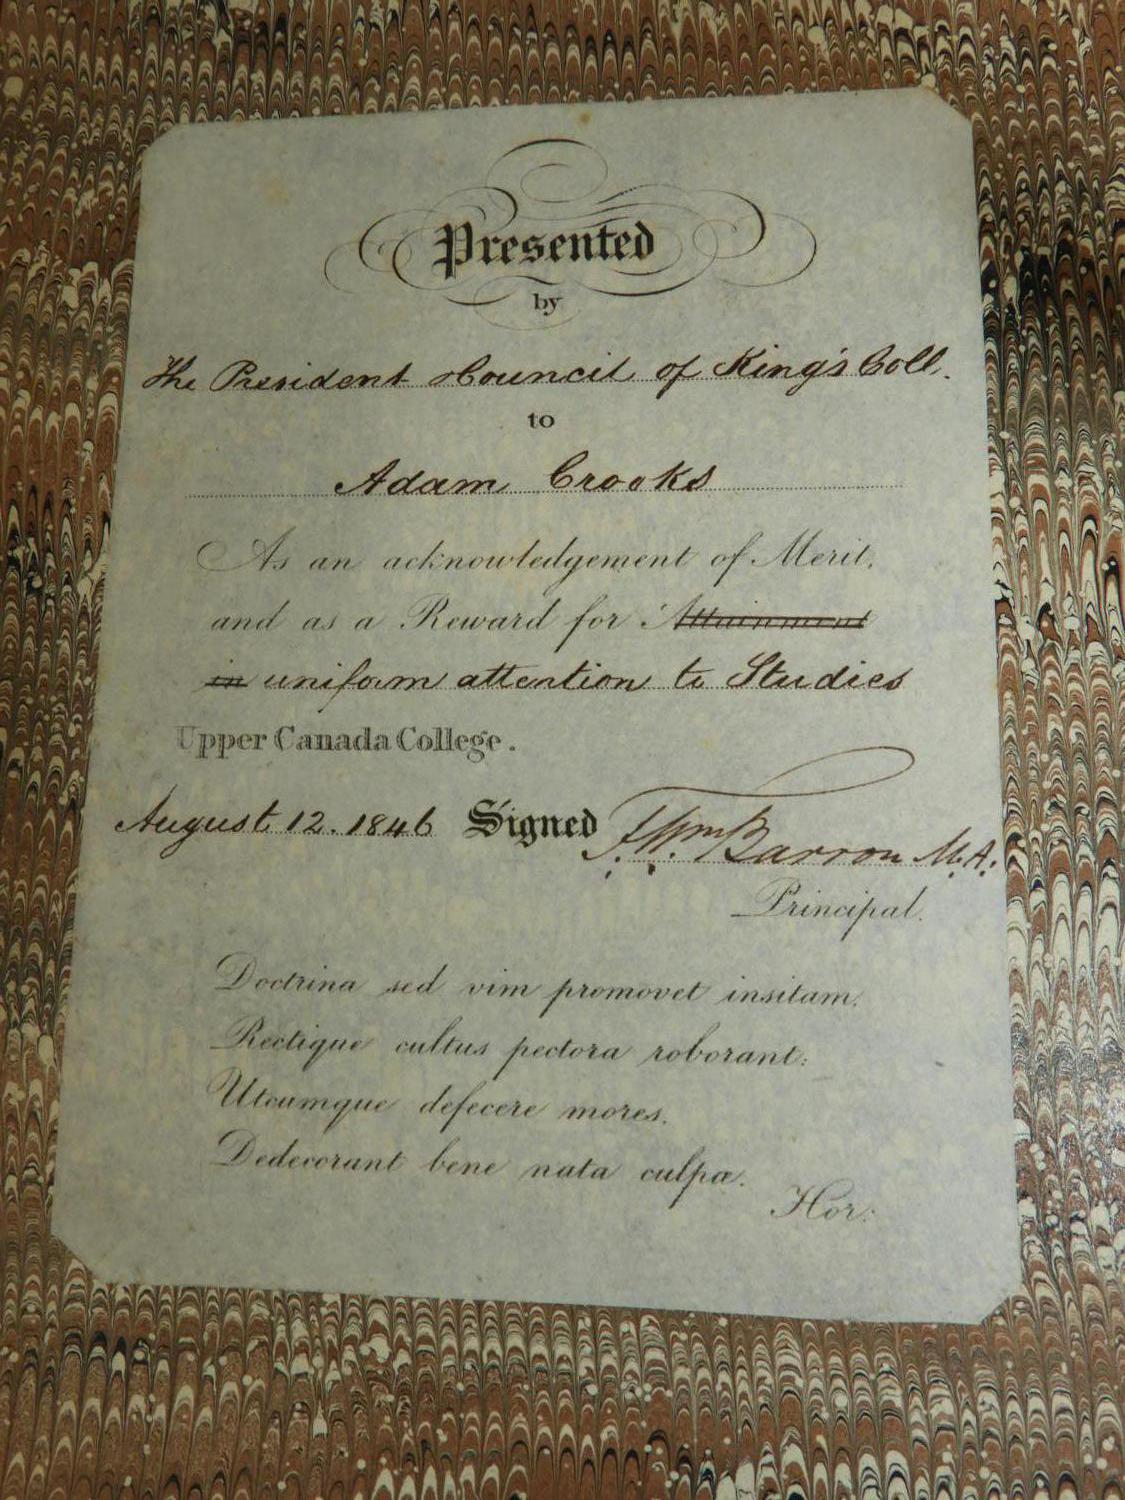 Presented
by
The President & Council of King's Coll.
to
Adam Crooks
As an acknowledgement of Merit,
and as a Reward for Attainment
in uniform attention to Studies
Upper Canada College.
August 12. 1846 Signed F. Wm Barron M.A.
Principal.
Doctrina sed vim promovet insitam,
Rectique cultus pectora roborant:
Utcumque defecere mores,
Dedecorant bene nata culpæ.
Hor: